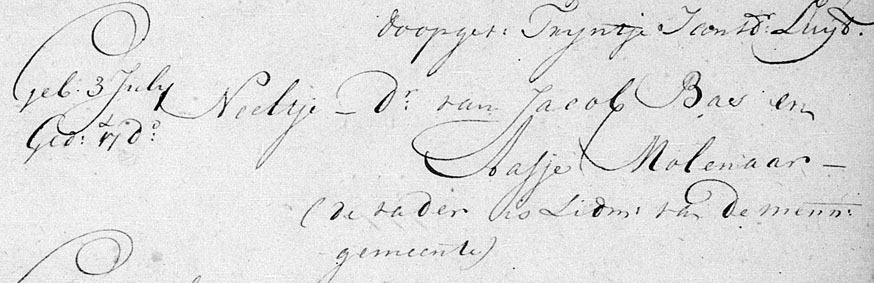 doopget: Tryntje Jansd:r Luyt.
geb: 3 July Neeltje - D:r van Jacob Bas en
Ged: 17 d:o Aafje Molenaar -
(de vader is Lidm: van de menn:
gemeente)